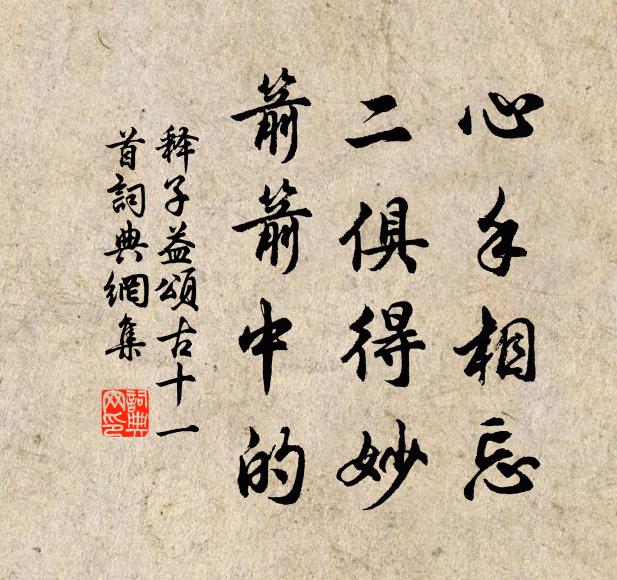 心手相忘
二俱得妙
箭箭中的
释子益頌古十一
首詞典網集
詞典网印